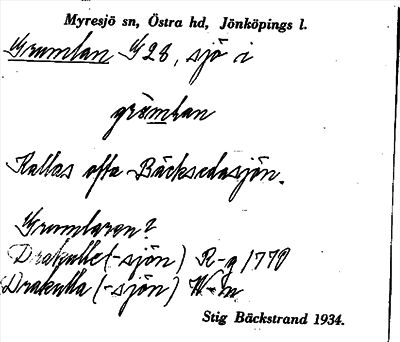 Myresjö sn, Östra hd, Jönköpings l.
Grumlan G 28, sjö i
grömlan
Kallas ofta Bäcksedasjön.
Grumlaren?
Drakulle (-sjön) R-g 1770
Drakulla (-sjön) W-m
Stig Bäckstrand 1934.